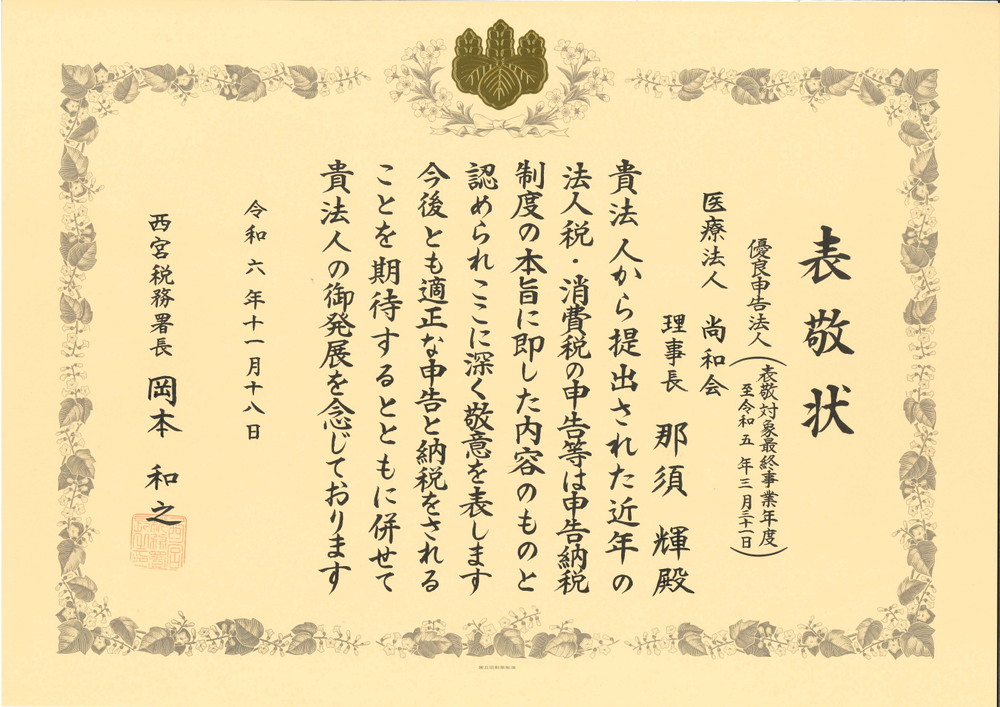 表敬状
優良申告法人(表敬対象最終事業年度
至令和五年三月三十一日)
医療法人 尚和会
理事長 那須 輝殿
貴法人から提出された近年の
法人税・消費税の申告等は申告納税
制度の本旨に即した内容のものと
認められここに深く敬意を表します
今後とも適正な申告と納税をされる
ことを期待するとともに併せて
貴法人の御発展を念じております
令和六年十一月十八日
西宮税務署長 岡本 和之